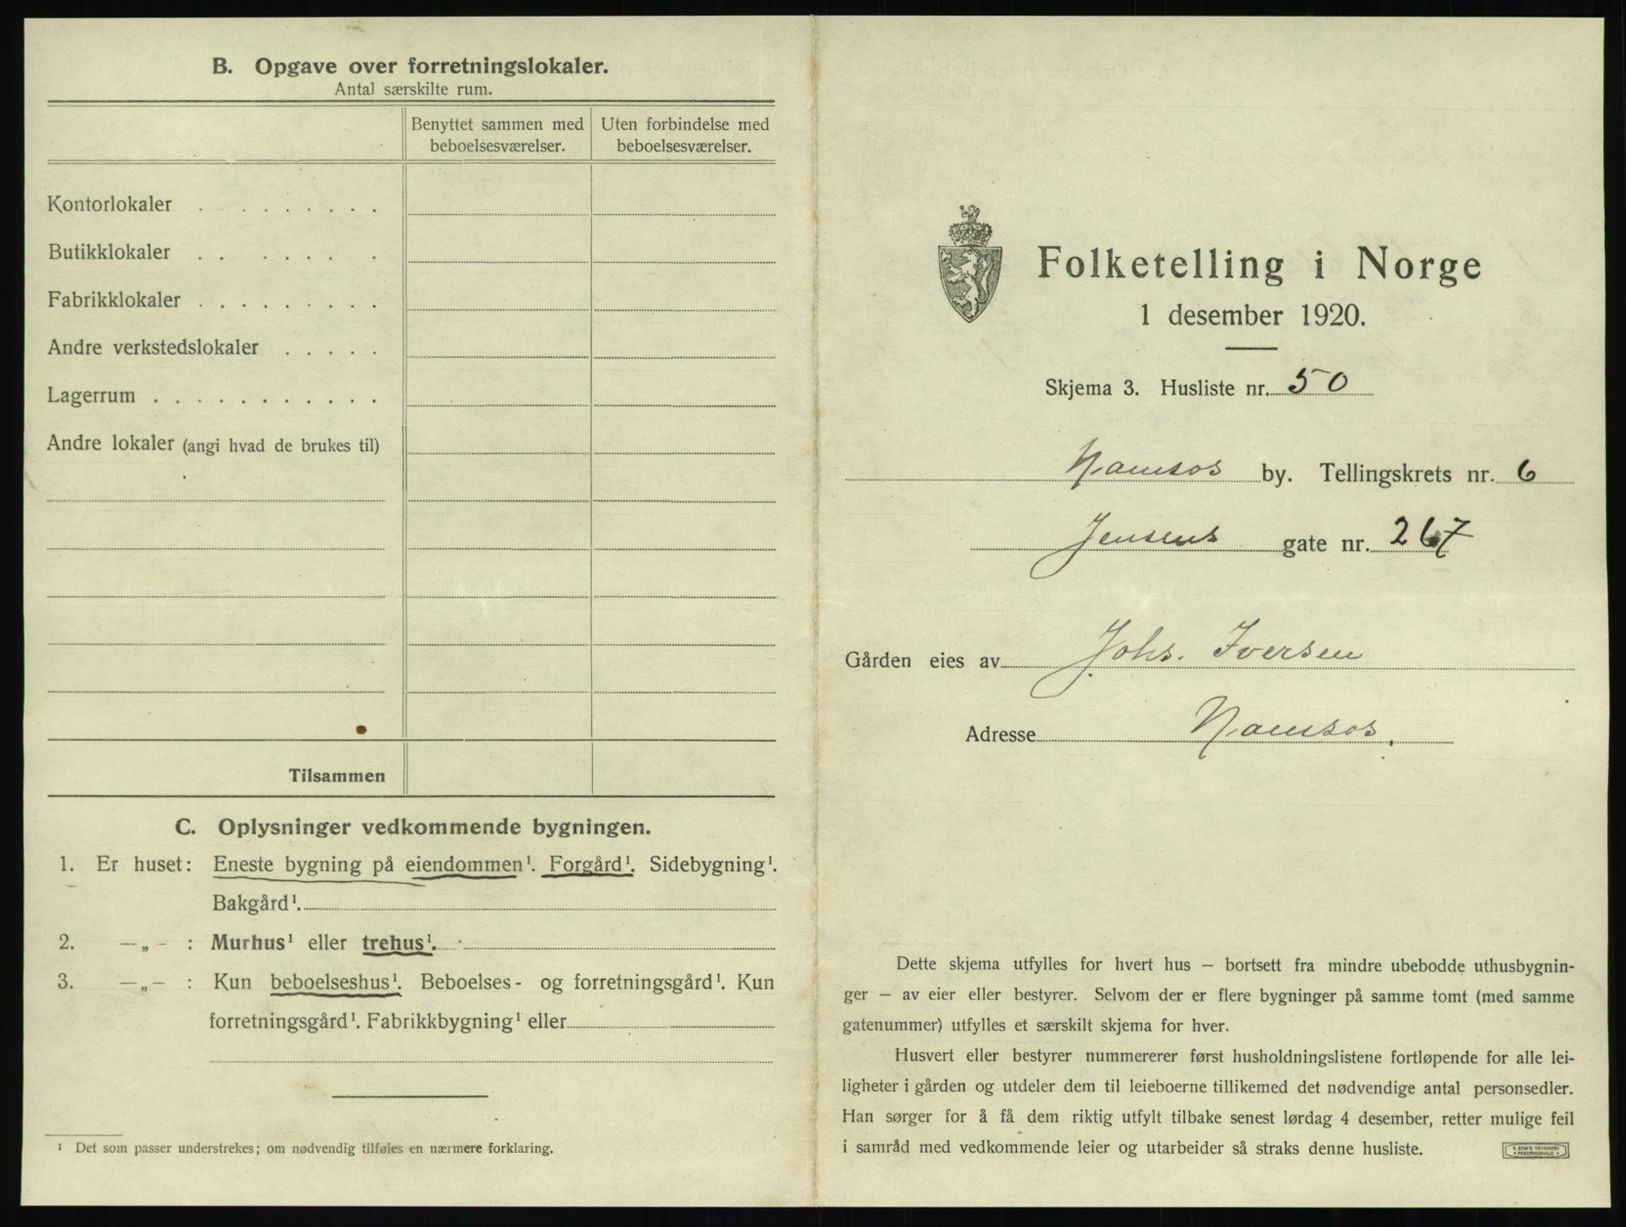 B. Opgave over forretningslokaler.
Antal særskilte rum.
Benyttet sammen med beboelsesværelser.
Uten forbindelse med beboelsesværelser.
Kontorlokaler . . . . . . . . .
Butikklokaler . . . . . . .
Fabrikklokaler . . . . . . . . .
Andre verkstedslokaler . . . . .
Lagerrum . . . . . . . . . . .
Andre lokaler (angi hvad de brukes til)
Tilsammen
C. Oplysninger vedkommende bygningen.
1. Er huset: Eneste bygning på eiendommen¹. Forgård¹. Sidebygning¹.
Bakgård¹.
2. —„— : Murhus¹ eller trehus¹.
3. —„— : Kun beboelseshus¹. Beboelses- og forretningsgård¹. Kun
forretningsgård¹. Fabrikkbygning¹ eller
¹ Det som passer understrekes; om nødvendig tilføies en nærmere forklaring.
Folketelling i Norge
1 desember 1920.
Skjema 3. Husliste nr. 50
Namsos by. Tellingskrets nr. 6
Jensens gate nr. 267
Gården eies av Johs. Iversen
Adresse Namsos.
Dette skjema utfylles for hvert hus — bortsett fra mindre ubebodde uthusbygnin-
ger — av eier eller bestyrer. Selvom der er flere bygninger på samme tomt (med samme
gatenummer) utfylles et særskilt skjema for hver.
Husvert eller bestyrer nummererer først husholdningslistene fortløpende for alle lei-
ligheter i gården og utdeler dem til leieboerne tillikemed det nødvendige antal personsedler.
Han sørger for å få dem riktig utfylt tilbake senest lørdag 4 desember, retter mulige feil
i samråd med vedkommende leier og utarbeider så straks denne husliste.